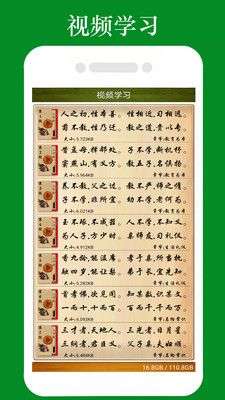 视频学习
视频学习
人之初,性本善。 性相近,习相远。
苟不教,性乃迁。 教之道,贵以专。
大小:5.454KB 章节:教育
昔孟母,择邻处。 子不学,断机杼。
窦燕山,有义方。 教五子,名俱扬。
大小:5.964KB 章节:教育
养不教,父之过。 教不严,师之惰。
子不学,非所宜。 幼不学,老何为。
大小:6.021KB 章节:教育
玉不琢,不成器。 人不学,不知义。
为人子,方少时。 亲师友,习礼仪。
大小: 章节:
香九龄,能温席。 孝于亲,所当执。
融四岁,能让梨。 弟于长,宜先知。
大小: 章节:
首孝悌,次见闻。 知某数,识某文。
一而十,十而百。 百而千,千而万。
大小: 章节:
三才者,天地人。 三光者,日月星。
三纲者,君臣义。 父子亲,夫妇顺。
大小: 章节:
16.8GB / 110.8GB